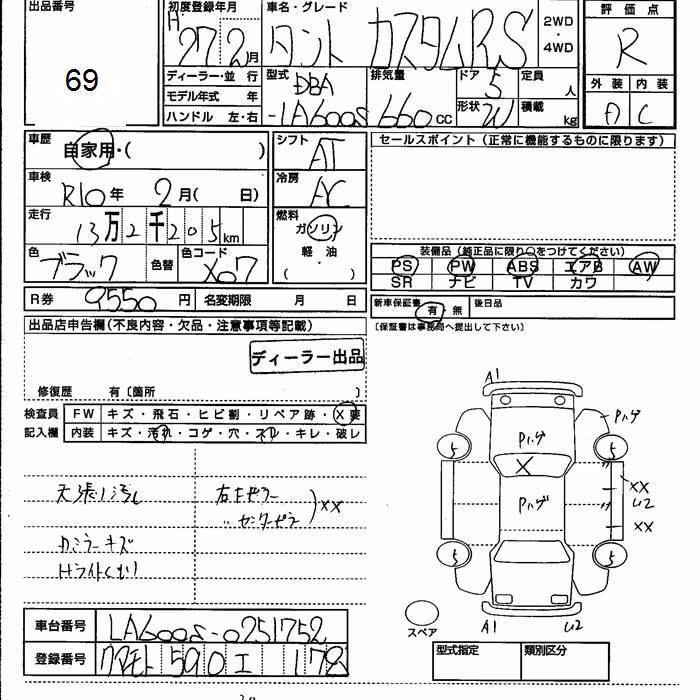 出品番号
69
初度登録年月
H 27 2月
車名・グレード
タント カスタムRS
2WD・4WD
評価点
R
外装 内装
A C
ディーラー・並 行
モデル年式 年
ハンドル 左・右
型式
DBA
-LA600S
排気量
660cc
ドア 5
形状 W
定員 人
積載 kg
車歴
自家用・( )
車検
R10年 2月( 日)
走行
13万2千205km
色
ブラック
色替
色コード
X07
シフト
AT
冷房
AC
燃料
ガソリン
軽・油
( ・ )
セールスポイント(正常に機能するものに限ります)
装備品(純正品に限り○をつけてください)
PS PW ABS エアB AW
SR ナビ TV カワ
R券 9550円 名変期限 月 日
新車保証書 有・無 後日品
〔保証書は事務局へ提出して下さい〕
出品店申告欄(不良内容・欠品・注意事項等記載)
ディーラー出品
修復歴 有〔箇所 〕
検査員記入欄
FW キズ・飛石・ヒビ割・リペア跡・X要
内装 キズ・汚れ・コゲ・穴・スレ・キレ・破レ
天張り汚レ
右Fピラー
〃センターピラー
XX
カミラーキズ
Hライトくもり
A1
Pハゲ
Pハゲ
5
5
X
Pハゲ
XX
U2
XX
5
5
スペア
A1
U2
車台番号 LA600S-0251752
登録番号 クマモト 590 エ 172
型式指定 類別区分